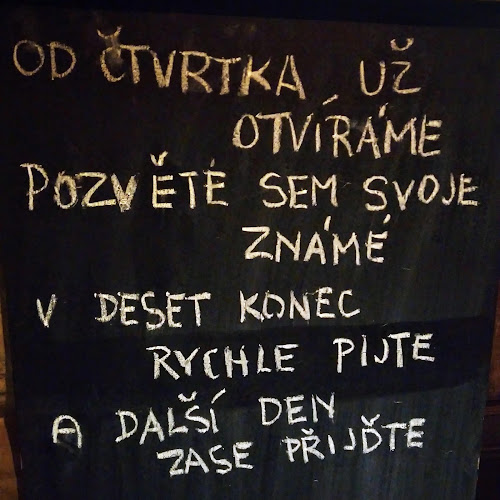 OD ČTVRTKA UŽ
OTVÍRÁME
POZVĚTE SEM SVOJE
ZNÁMÉ
V DESET KONEC
RYCHLE PIJTE
A DALŠÍ DEN
ZASE PŘIJĎTE